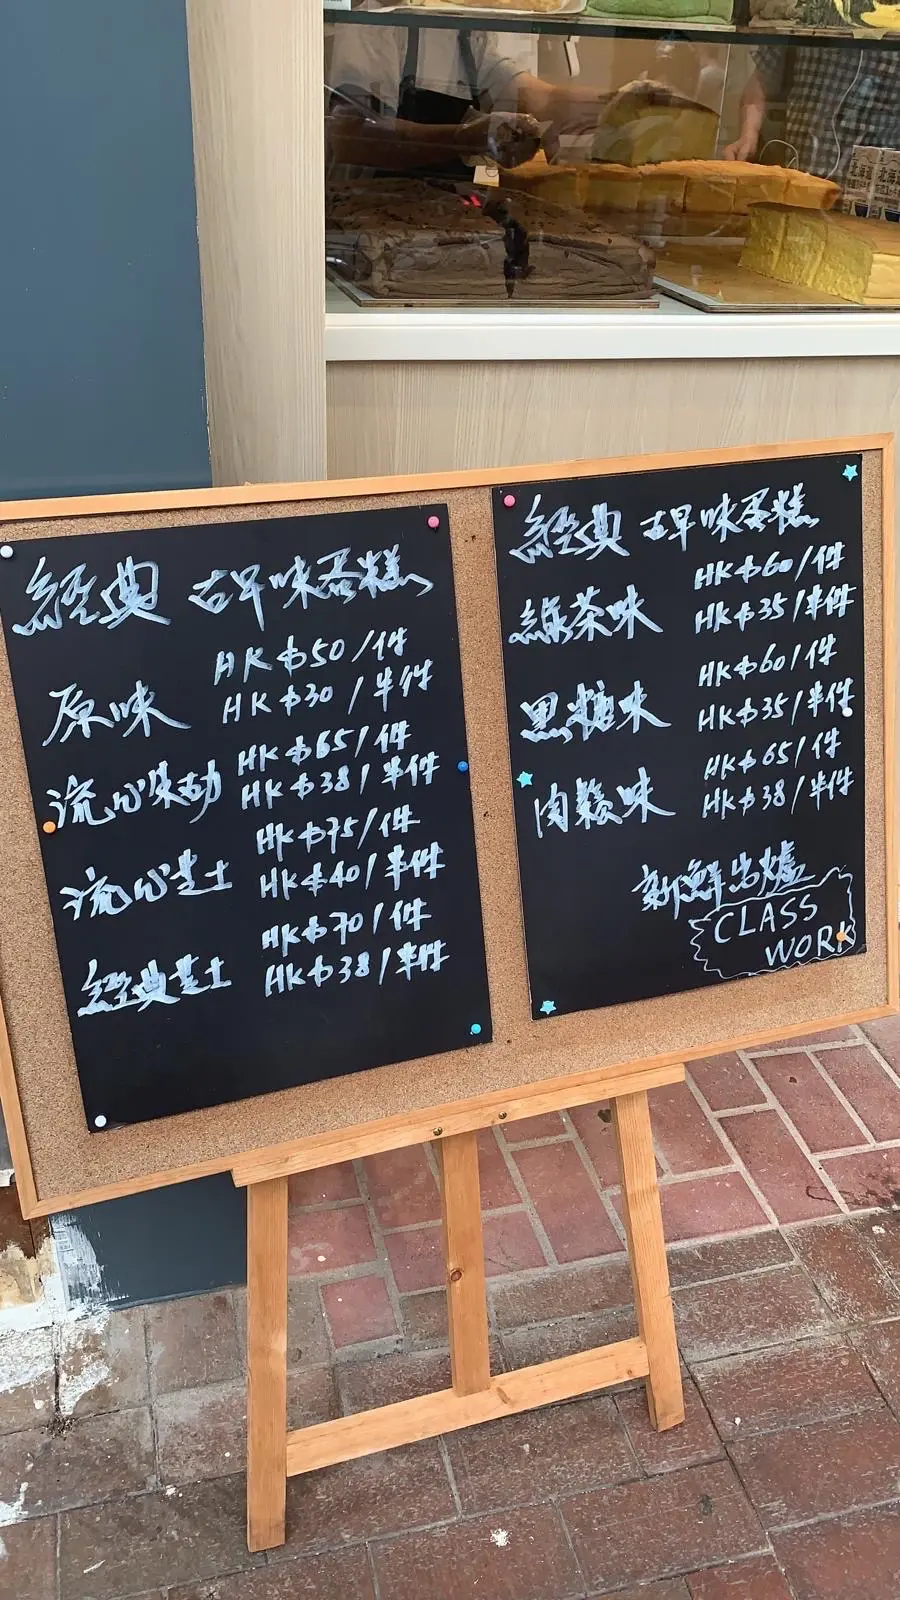 經典 古早味蛋糕
原味
HK$50/件
HK$30/半件
流心朱古力
HK$65/件
HK$38/半件
流心芝士
HK$75/件
HK$40/半件
經典芝士
HK$70/件
HK$38/半件
經典 古早味蛋糕
綠茶味
HK$60/件
HK$35/半件
黑糖味
HK$60/件
HK$35/半件
肉鬆味
HK$65/件
HK$38/半件
新鮮出爐
CLASS
WORK